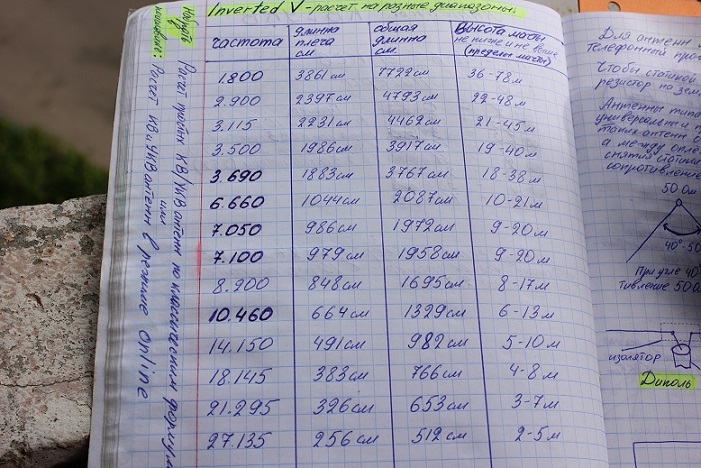 Inverted V - расчет на разные диапазоны.
частота длинна плеча см. общая длинна см. Высота мачты не ниже и не выше (пределы мачты)
1.800 3861 см 7722 см 36-78 м
2.900 2397 см 4793 см 22-48 м
3.115 2231 см 4462 см 21-45 м
3.500 1986 см 3917 см 19-40 м
3.690 1883 см 3767 см 18-38 м
6.660 1044 см 2087 см 10-21 м
7.050 986 см 1972 см 9-20 м
7.100 979 см 1958 см 9-20 м
8.900 848 см 1695 см 8-17 м
10.460 664 см 1329 см 6-13 м
14.150 491 см 982 см 5-10 м
18.145 383 см 766 см 4-8 м
21.295 326 см 653 см 3-7 м
27.135 256 см 512 см 2-5 м
Расчет простых КВ/УКВ антенн по классическим формул
или
Расчет КВ и УКВ антенн в режиме Online
Для антенн
Чтобы
резистор на
Антенны
а между
50 Ом
40°-50
При угле 40°
тивление 50 О
изолятор
Диполь